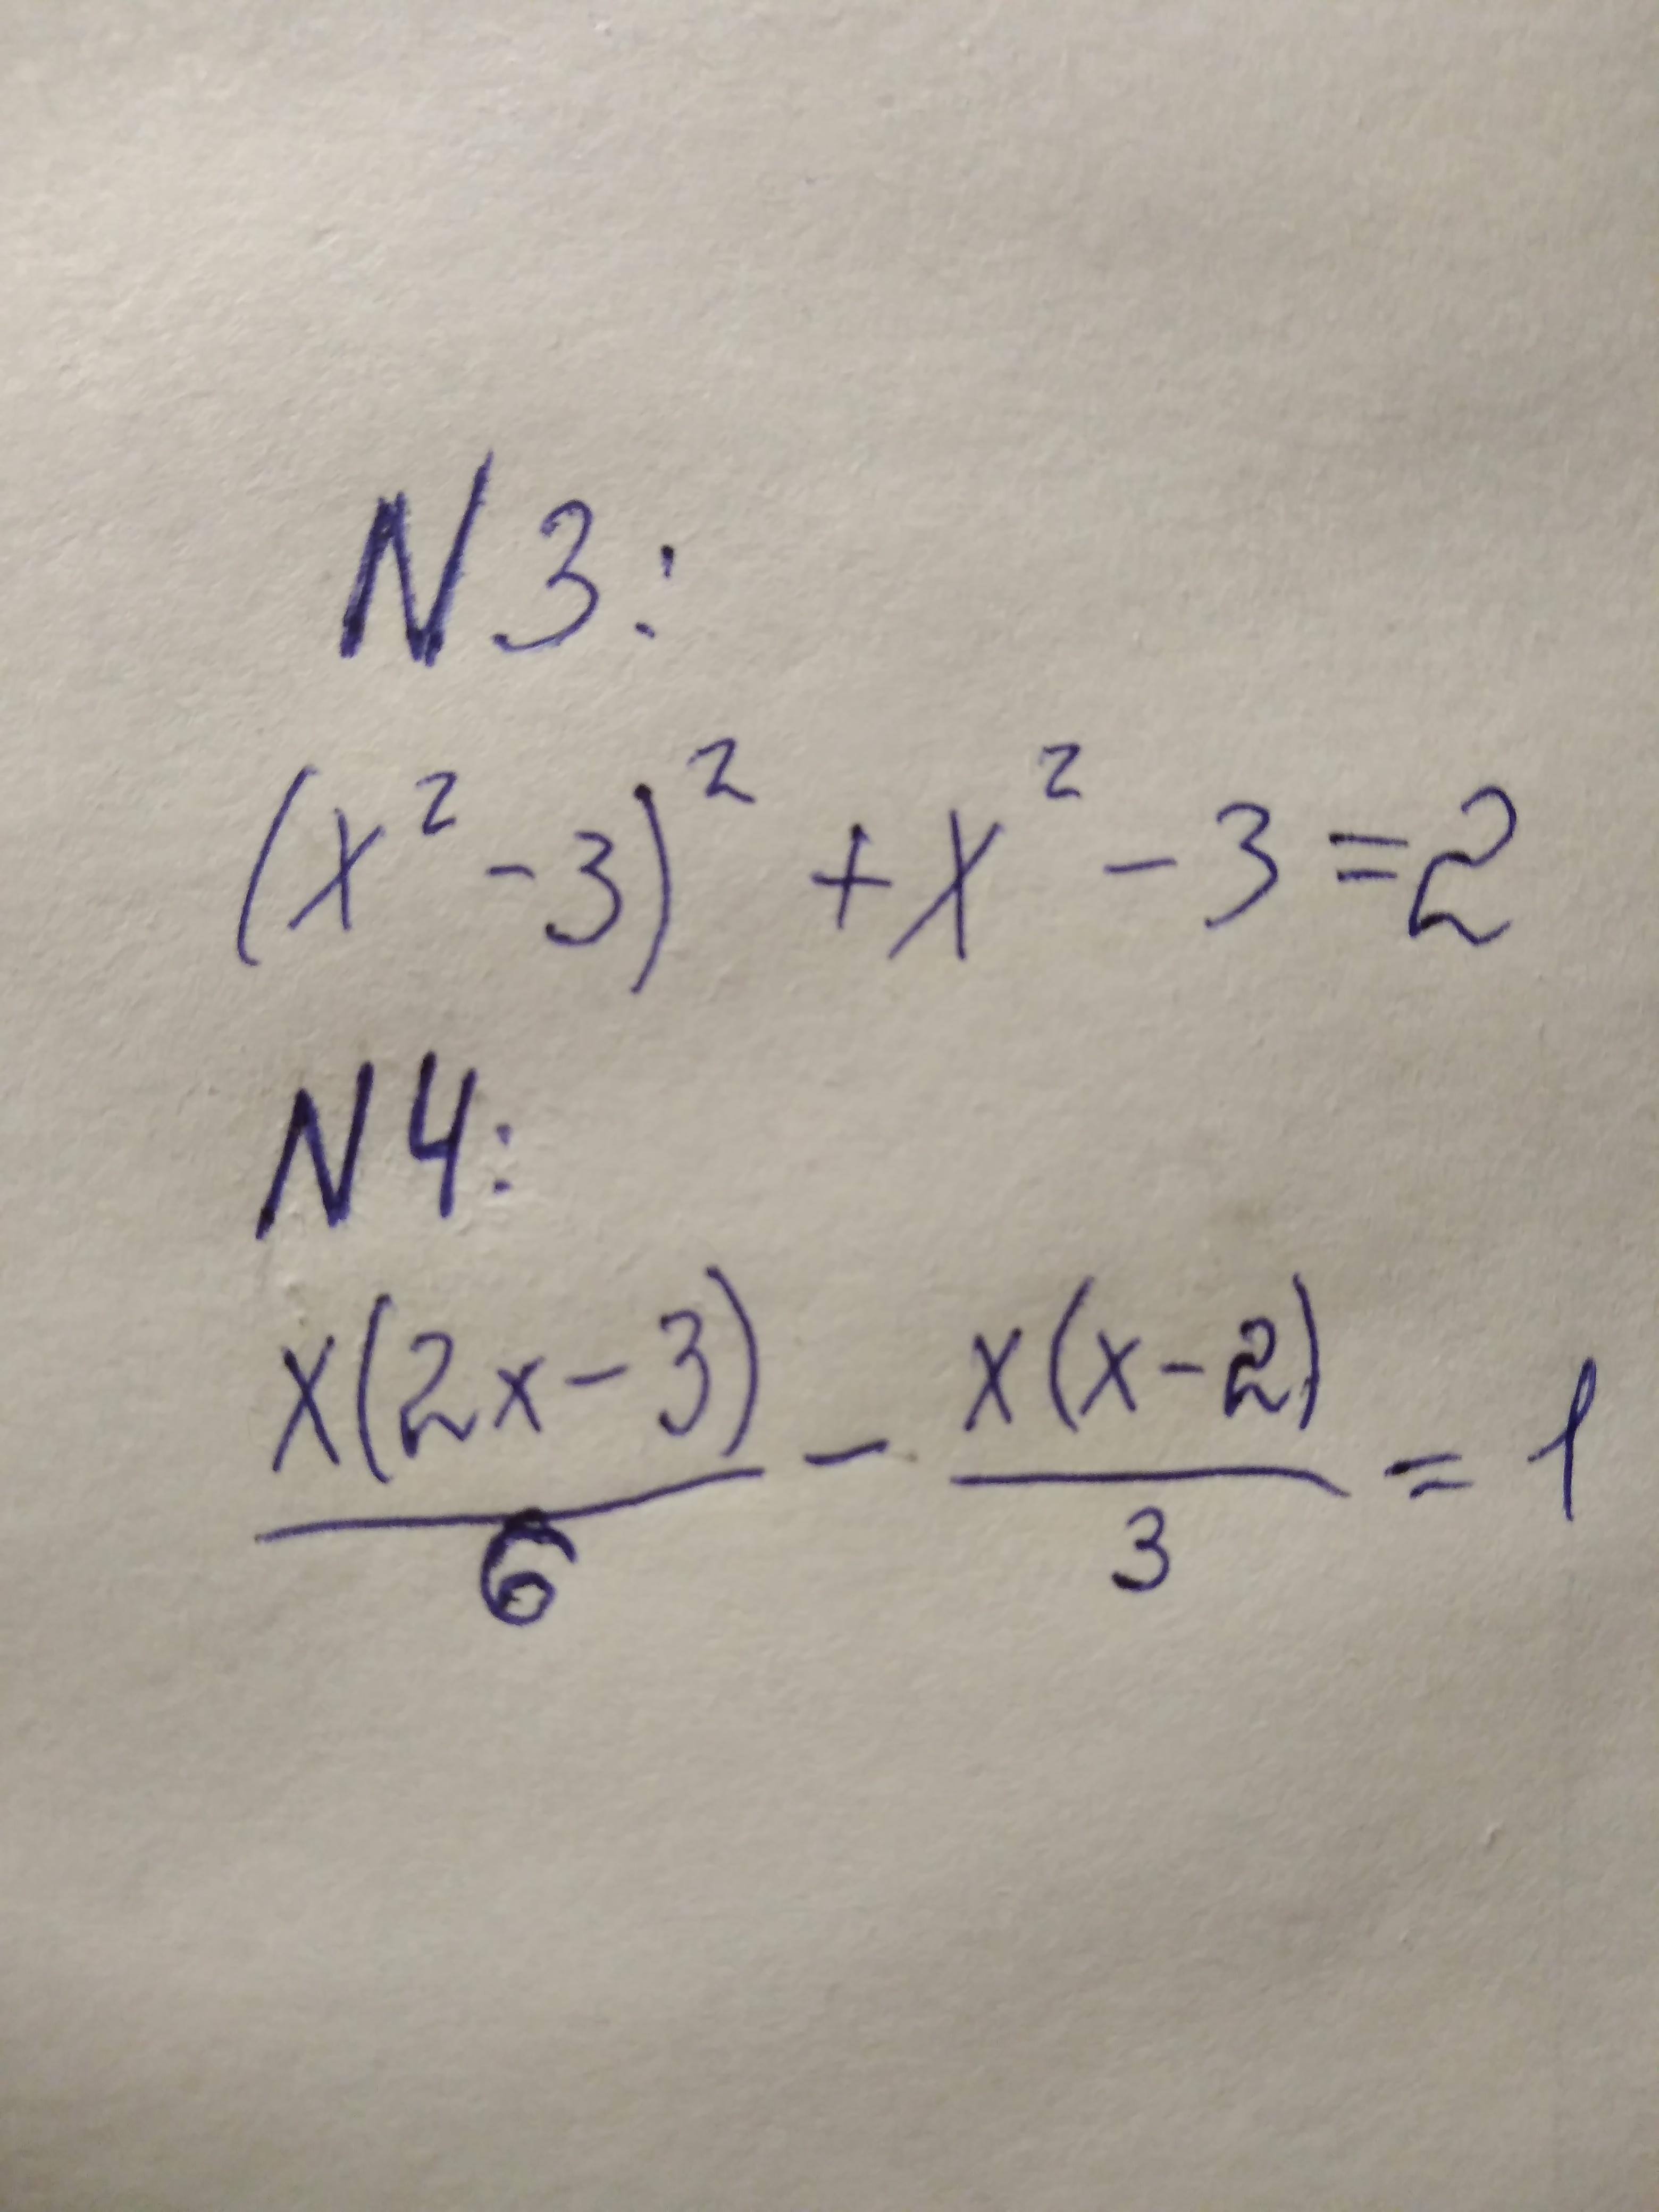 N3:
(x² -3)² + x² - 3 = 2
N4:
x(2x-3)/6 - x(x-2)/3 = 1